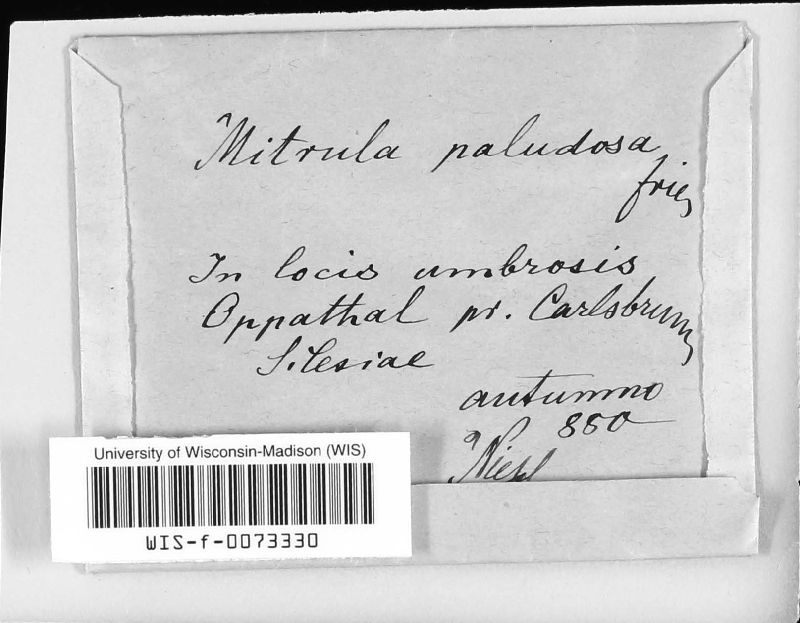 Mitrula paludosa
fries
In locis umbrosis
Oppathal pr. Carlsbrunn
Silesiae
autumno
880
Niessl
University of Wisconsin-Madison (WIS)
WIS-f-0073330